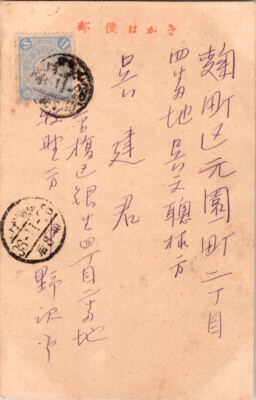 郵便はかき
麹町区元園町二丁目
四番地 呉文聰様方
呉建君
京橋区銀座四丁目二番地
野沢